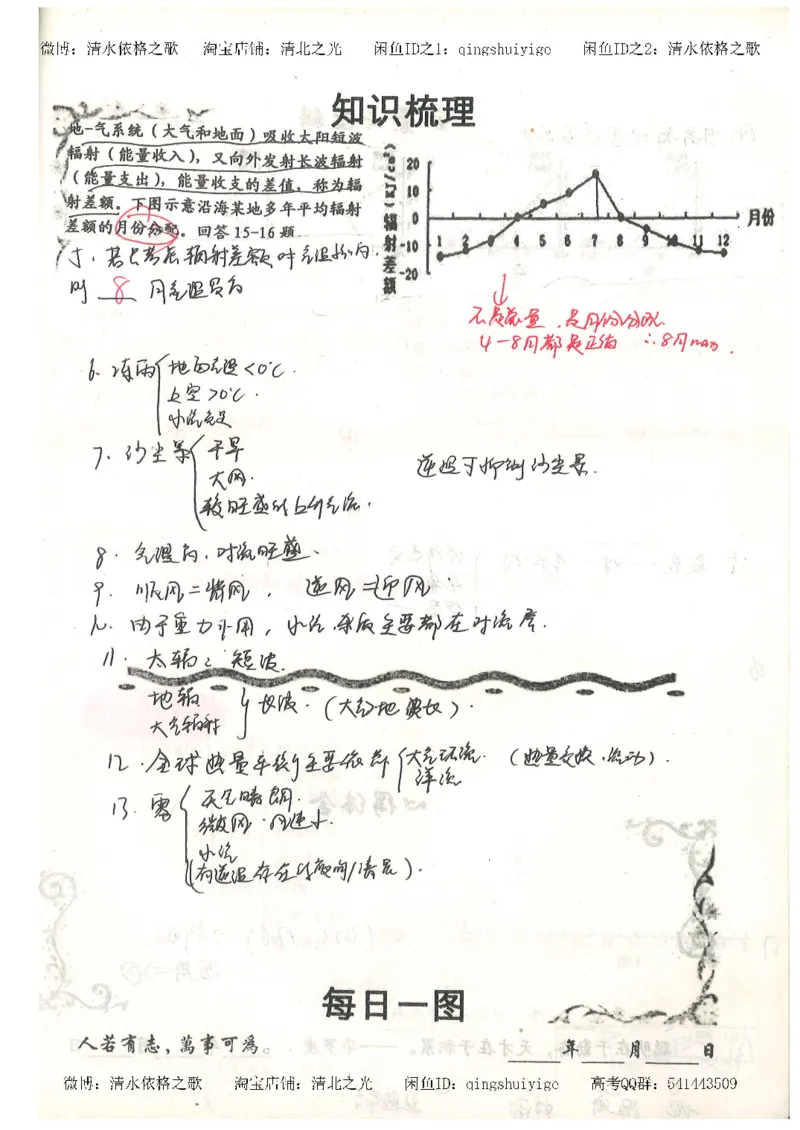 微博：清水依格之歌 淘宝店铺：清北之光 闲鱼ID之1：qingshuiyige 闲鱼ID之2：清水依格之歌
知识梳理
地-气系统（大气和地面）吸收太阳短波
辐射（能量收入），又向外发射长波辐射
（能量支出），能量收支的差值，称为辐
射差额。下图示意沿海某地多年平均辐射
差额的月份分配。回答15-16题.
辐射差额(KJ/cm²)
20
10
0
-10
-20
1 2 3 4 5 6 7 8 9 10 11 12
月份
5. 若只考虑辐射差额对气温影响.
则 8 月气温最高
不是总量，是月份分配
4-8月都是正值 ∴8月max.
6. 冻雨 地面气温<0℃.
上空>0℃.
水汽充足
7. 沙尘暴 干旱
大风.
较旺盛的上升气流.
逆温可抑制沙尘暴.
8. 气温高，对流旺盛.
9. 顺风=背风， 逆风=迎风
10. 由于重力作用，水汽杂质主要都在对流层.
11. 太辐：短波.
地辐
大气辐射
长波.（大气地吸收）.
12. 全球热量平衡主要依靠 大气环流. （热量交换、流动）.
洋流
13. 雾 天气晴朗.
微风.风速小.
水汽
（有逆温存在时夜间/清晨）.
每日一图
人若有志，萬事可為。
年 月 日
微博：清水依格之歌 淘宝店铺：清北之光 闲鱼ID：qingshuiyige 高考QQ群：541443509